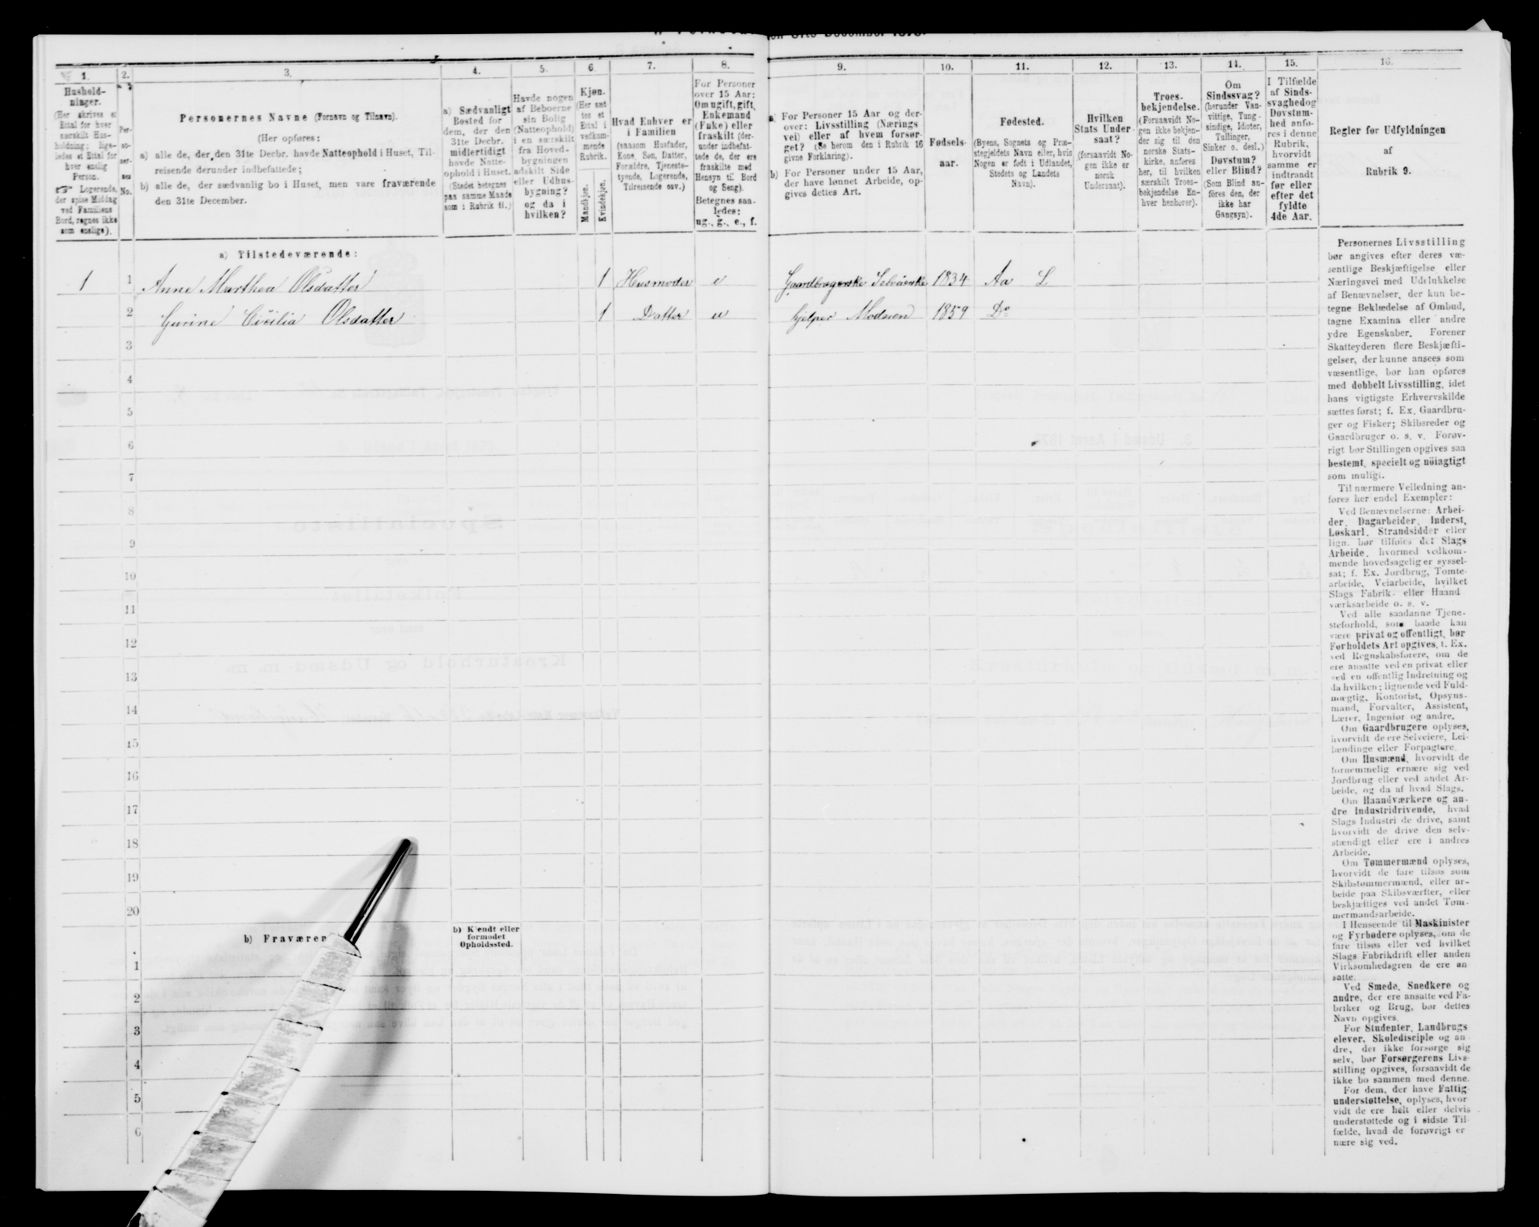 1.
Hushold-
ninger.
(Her skrives et
Ettal for hver
særskilt Hus-
holdning; lige-
ledes et Ettal for
hver enslig
Person.
Logerende,
der spise Middag
ved Familiens
Bord, regnes ikke
som enslige).
2.
3.
Personernes Navne (Fornavn og Tilnavn).
(Her opføres:
a) alle de, der den 31te Decbr. havde Natteophold i Huset, Til-
reisende derunder indbefattede;
b) alle de, der sædvanlig bo i Huset, men vare fraværende
den 31te December.
4.
a) Sædvanligt
Bosted for
dem, der den
31te Decbr.
midlertidigt
havde Natte-
ophold i Huset.
(Stedet betegnes
paa samme Maade
som i Rubrik 11.)
5.
Havde nogen
af Beboerne
sin Bolig
(Natteophold)
i en særskilt
fra Hoved-
bygningen
adskilt Side
eller Udhus-
bygning?
og da i
hvilken?
6.
Kjøn.
(Her sæt
tes et
Ettal i
vedkom-
mende
Rubrik.
Mandkjøn.
Kvindekjøn.
7.
Hvad Enhver er
i Familien
(saasom Husfader,
Kone, Søn, Datter,
Forældre, Tjeneste-
tyende, Logerende,
Tilreisende osv.)
8.
For Personer
over 15 Aar:
Om ugift, gift,
Enkemand
(Enke) eller
fraskilt (der-
under indbefat-
tede de, der ere
fraskilte med
Hensyn til Bord
og Seng).
Betegnes saa-
ledes:
ug., g., e., f.
9.
a) For Personer 15 Aar og der-
over: Livsstilling (Nærings
vei) eller af hvem forsør-
get? (Se herom den i Rubrik 16
givne Forklaring).
b) For Personer under 15 Aar,
der have lønnet Arbeide, op-
gives dettes Art.
10.
Fødsels-
aar.
11.
Fødested.
(Byens, Sognets og Præ-
stegjeldets Navn eller, hvis
Nogen er født i Udlandet,
Stedets og Landets
Navn).
12.
Hvilken
Stats Under
saat?
(forsaavidt No-
gen ikke er
norsk
Undersaat).
13.
Troes-
bekjendelse.
(Forsaavidt No-
gen ikke bekjen-
der sig til den
norske Stats-
kirke, anføres
her, til hvilken
særskilt Troes-
bekjendelse En-
hver henhører).
14.
Om
Sindssvag?
(herunder Van-
vittige, Tung-
sindige, Idioter,
Tullinger,
Sinker o. desl.)
Døvstum?
eller Blind?
(Som Blind an-
føres den, der
ikke har
Gangsyn).
15.
I Tilfælde
af Sinds-
svaghed og
Døvstum-
hed anfø-
res i denne
Rubrik,
hvorvidt
samme er
indtraadt
før eller
efter det
fyldte
4de Aar.
16.
Regler før Udfyldningen
af
Rubrik 9.
a) Tilstedeværende:
1 1 Anne Marthea Olsdatter 1 Husmoder e Gaardbrugerske Selveierske 1834 Aa L
2 Gurine Cicilia Olsdatter 1 Datter u hjelper Moderen 1859 Do
3
4
5
6
7
8
9
10
11
12
13
14
15
16
17
18
19
20
b) Fraværen
b) Kjendt eller
formodet
Opholdssted.
1
2
3
4
5
6
Personernes Livsstilling
bør angives efter deres væ-
sentlige Beskjæftigelse eller
Næringsvei med Udelukkelse
af Benævnelser, der kun be-
tegne Beklædelse af Ombud,
tagne Examina eller andre
ydre Egenskaber. Forener
Skatteyderen flere Beskjæfti-
gelser, der kunne ansees som
væsentlige, bør han opføres
med dobbelt Livsstilling, idet
hans vigtigste Erhvervskilde
sættes først; f. Ex. Gaardbru-
ger og Fisker; Skibsreder og
Gaardbruger o. s. v. Forøv-
rigt bør Stillingen opgives saa
bestemt, specielt og nøiagtigt
som muligt.
Til nærmere Veiledning an-
føres her endel Exempler:
Ved Benævnelserne: Arbei-
der, Dagarbeider, Inderst,
Løskarl, Strandsidder eller
lign. bør tilføies det Slags
Arbeide, hvormed vedkom-
mende hovedsagelig er syssel-
sat; f. Ex. Jordbrug, Tomte-
arbeide, Veiarbeide, hvilket
Slags Fabrik- eller Haand
værksarbeide o. s. v.
Ved alle saadanne Tjene-
steforhold, som baade kan
være privat og offentligt, bør
Forholdets Art opgives, f. Ex.
ved Regnskabsførere, om de
ere ansatte ved en privat eller
ved en offentlig Indretning og
da hvilken; lignende ved Fuld-
mægtig, Kontorist, Opsyns-
mand, Forvalter, Assistent,
Lærer, Ingeniør og andre.
Om Gaardbrugere oplyses,
hvorvidt de ere Selveiere, Lei-
lændinge eller Forpagtere.
Om Husmænd, hvorvidt de
fornemmelig ernære sig ved
Jordbrug eller ved andet Ar-
beide, og da af hvad Slags.
Om Haandværkere og an-
dre Industridrivende, hvad
Slags Industri de drive, samt
hvorvidt de drive den selv-
stændigt eller ere i andres
Arbeide.
Om Tømmermænd oplyses,
hvorvidt de fare tilsøs som
Skibstømmermænd, eller ar-
beide paa Skibsværfter, eller
beskjæftiges ved andet Tøm-
mermandsarbeide.
I Henseende til Maskinister
og Fyrbødere oplyses, om de
fare tilsøs eller ved hvilket
Slags Fabrikdrift eller anden
Virksomhedsgren de ere an
satte.
Ved Smede, Snedkere og
andre, der ere ansatte ved Fa-
briker og Brug, bør dettes
Navn opgives.
For Studenter, Landbrugs
elever, Skoledisciple og an
dre, der ikke forsørge sig
selv, bør Forsørgerens Livs-
stilling opgives, forsaavidt de
ikke bo sammen med denne.
For dem, der have Fattig
understøttelse, oplyses, hvor
vidt de ere helt eller delvis
understøttede og i sidste Til
fælde, hvad de forøvrigt er
nære sig ved.